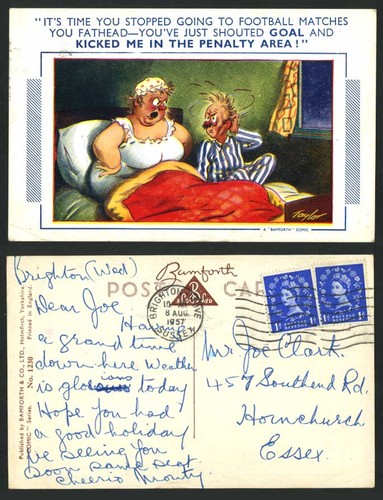 "IT'S TIME YOU STOPPED GOING TO FOOTBALL MATCHES
YOU FATHEAD—YOU'VE JUST SHOUTED GOAL AND
KICKED ME IN THE PENALTY AREA!"
Taylor
A "BAMFORTH" COMIC
Brighton (Wed)
Dear Joe. Have
a grand time
down here weather
is glorious today
Hope you had
a good holiday
be seeing you
soon same seat
Cheerio Monty
Published by BAMFORTH & CO., LTD., Holmfirth, Yorkshire.
"COMIC" Series. No. 1230 Printed in England.
Bamforth
POST CARD
BRIGHTON
8 AUG
1957
SUSSEX
Mr Joe Clark.
457 Southend Rd.
Hornchurch
Essex.